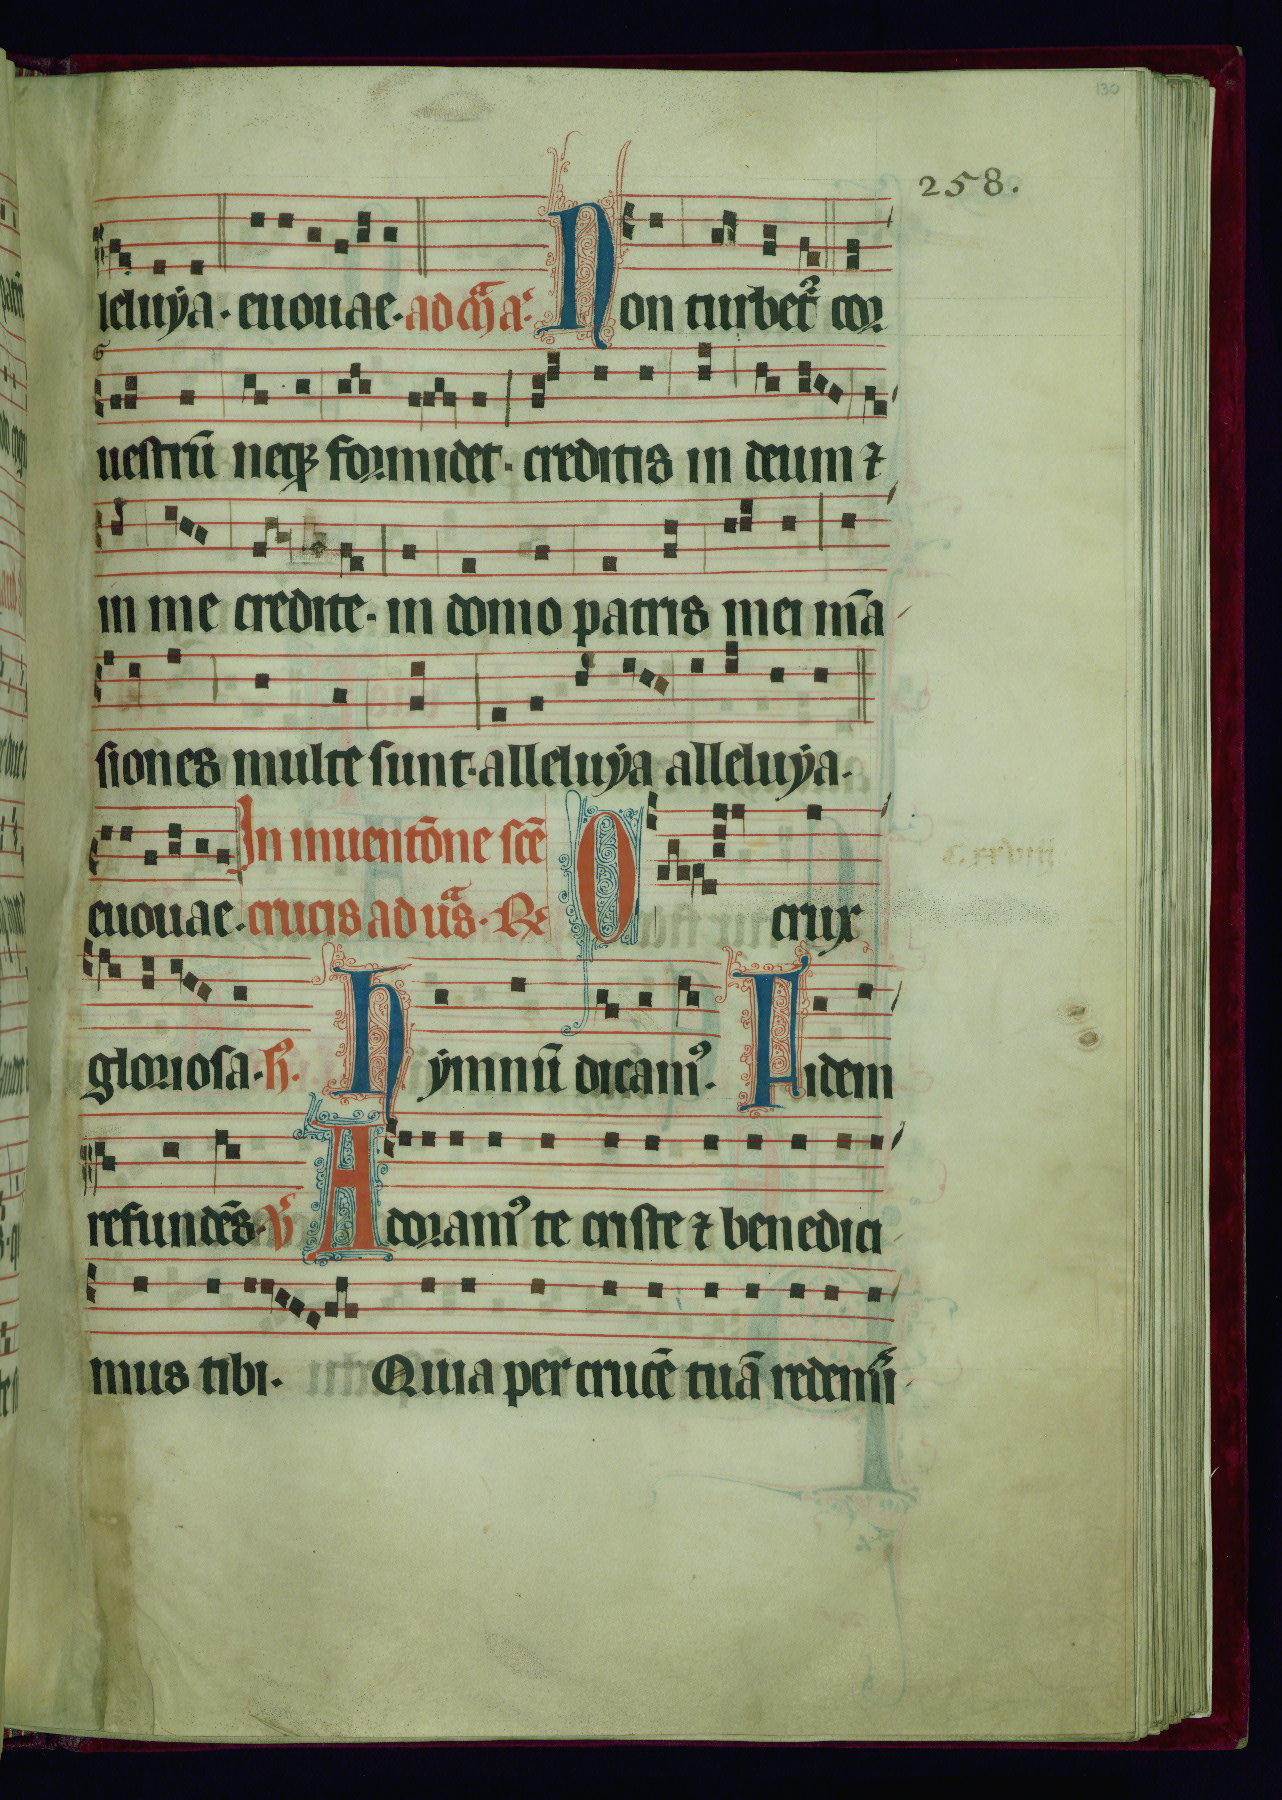 130
258.
leluya. euouae. ad mā a. Non turbet cor
uestrū neqꝫ formidet. creditis in deum ⁊
in me credite. in domo patris mei mā
siones multe sunt. alleluya alleluya.
In inuentōne scē
euouae. crucis ad uās. R O crux
gloriosa. h̄. Hymnū dicamꝰ. Fidem
refundēs. V Adoramꝰ te criste ⁊ benedici
mus tibi. Quia per crucē tuā redemi